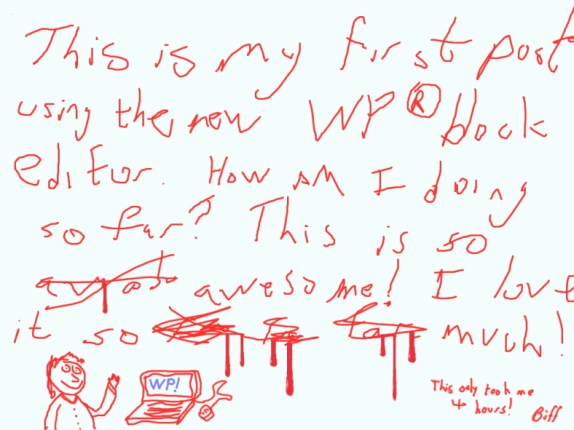 This is my first post
using the new WP® block
editor. How AM I doing
so far? This is so
awesome! I love
it so much!
WP!
This only took me
4 hours!
Biff